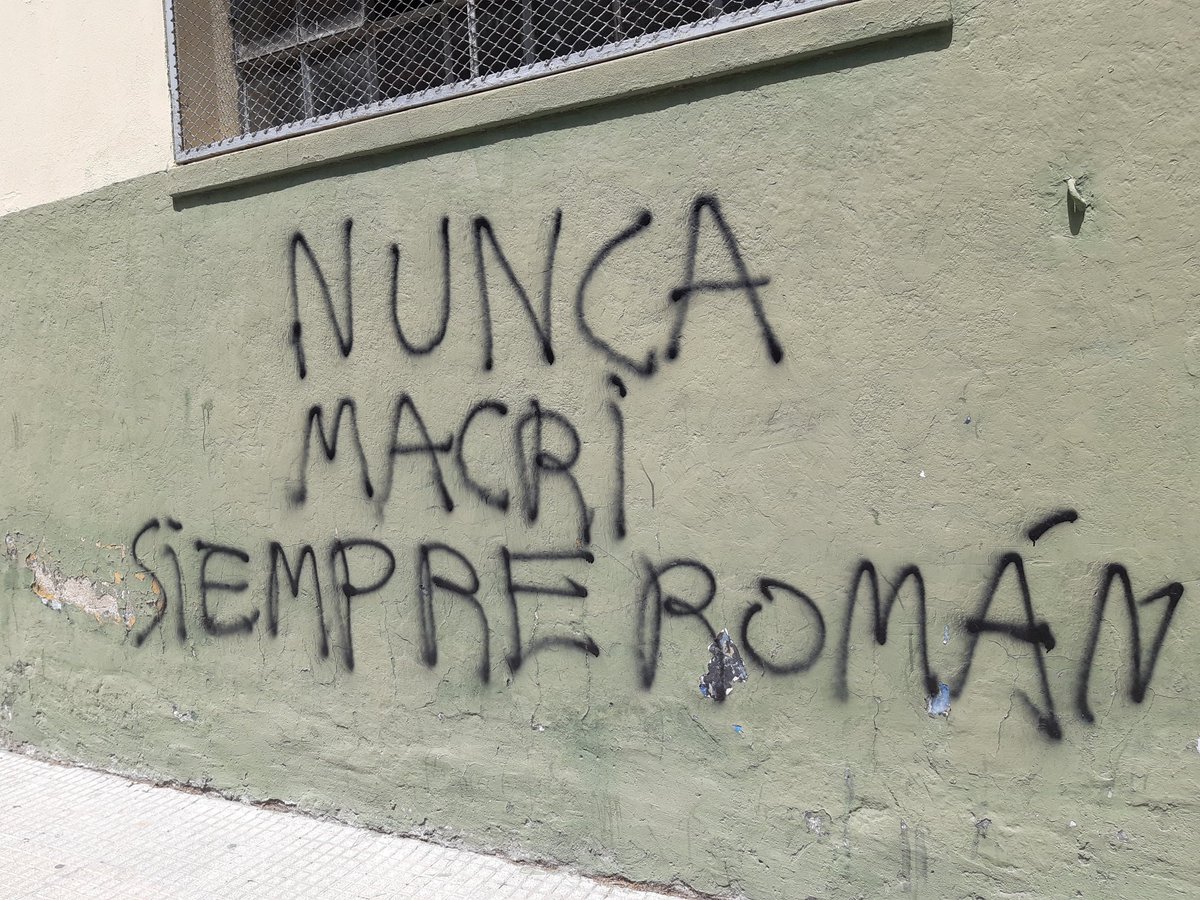 NUNCA
MACRi
SiEMPRE ROMÁN